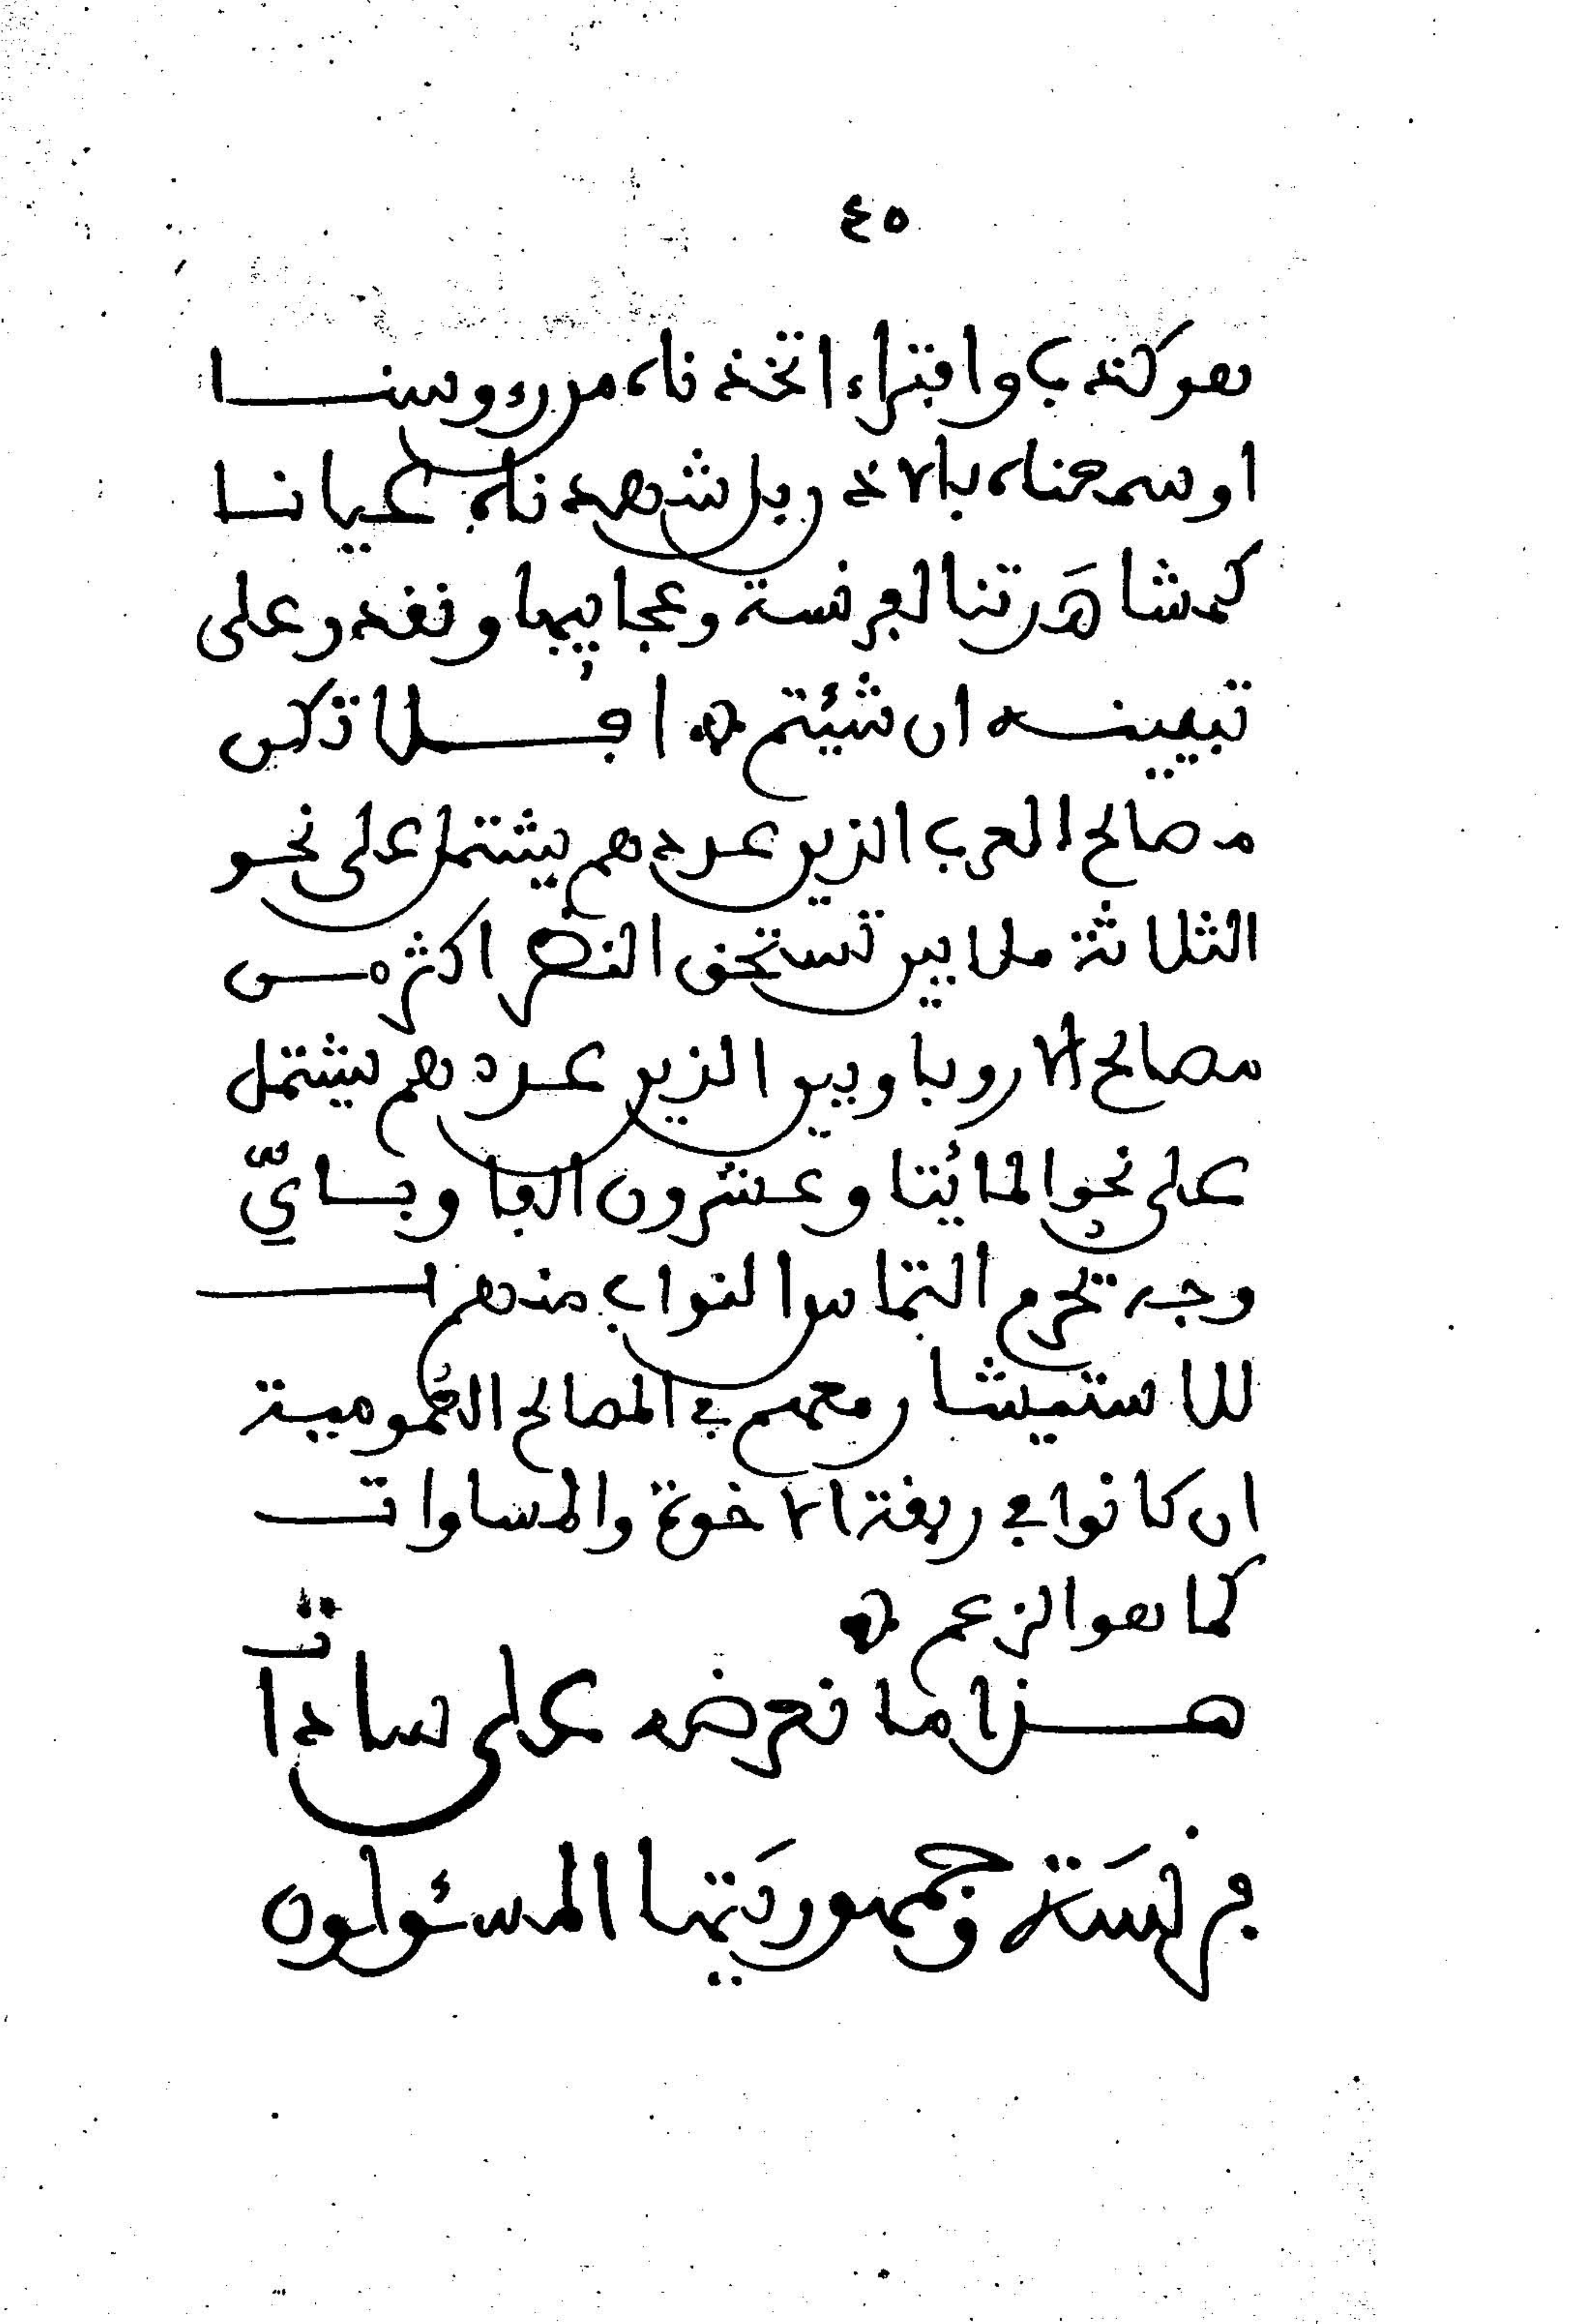 ٤٥
هو كذب وافتراء اتخذناه من رءوسنا
او سمعناه بالاذ ربل شهدناه عيانا
كمشاهدتنا لفرنسة وعجايبها ونقدر على
تبيينه ان شئيتم افلا تكن
مصالح العرب الذين عددهم يشتمل على نحو
الثلاثة ملايين تستحق النضر اكثر من
مصالح الاروباويين الذين عددهم يشتمل
على نحو المائيتا وعشرون الفا وبايّ
وجه تحرم التماس النواب منهم
للاستيشار معهم في المصالح العمومية
ان كانوا في ربقة الاخوة والمساوات
كما هو الزعم
هذا ما نعرضه على سادات
فرنسَة وجمهوريَتها المسئولون